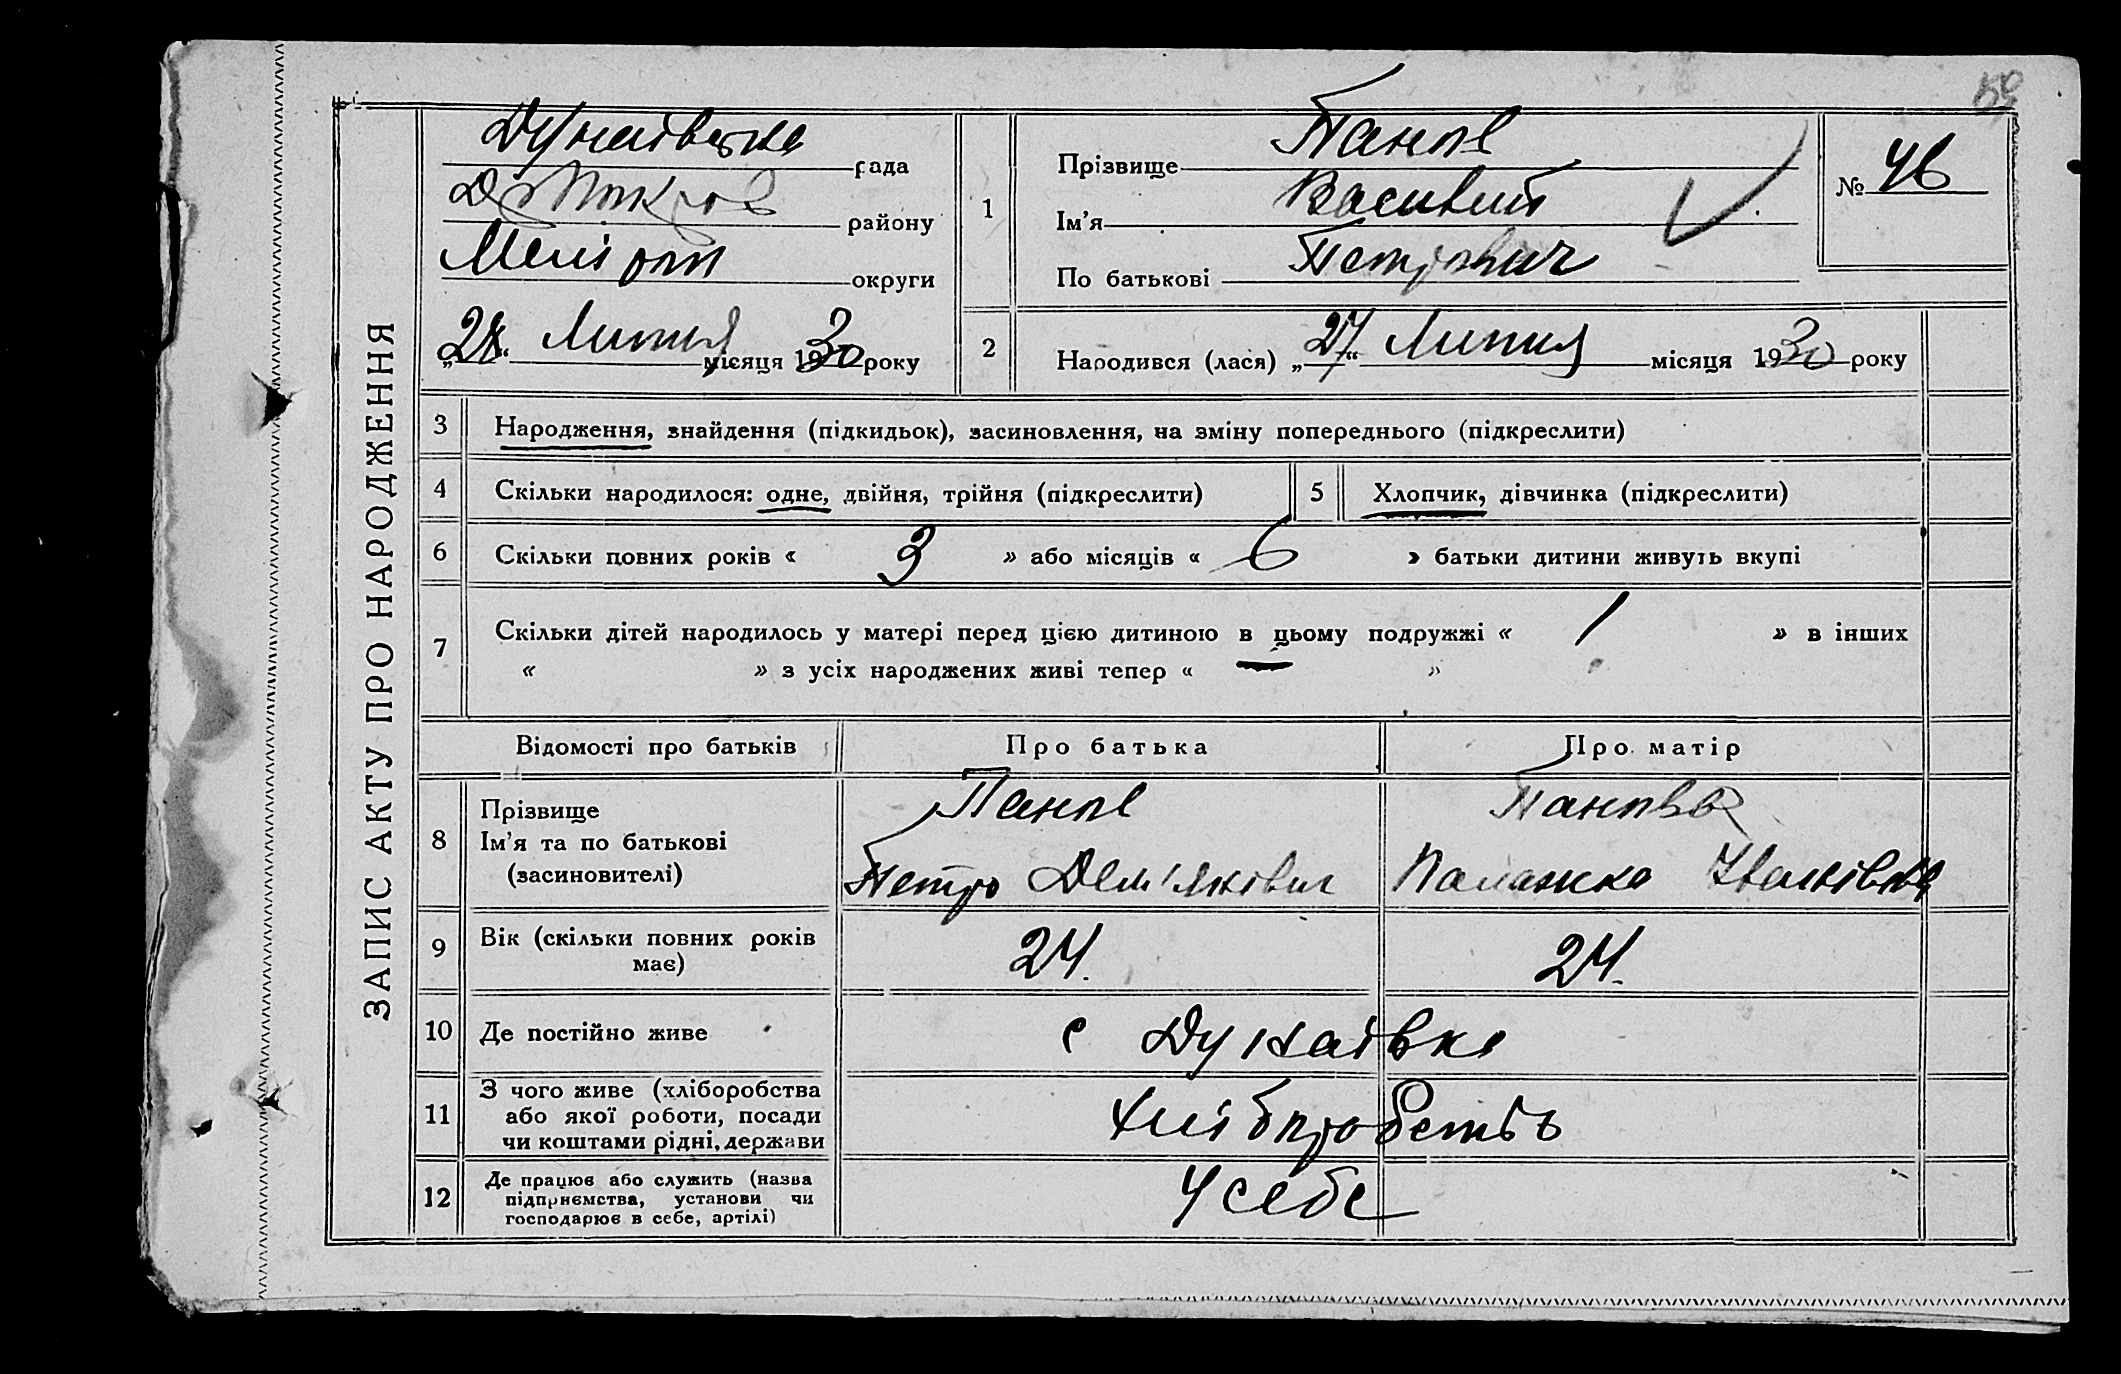 59
ЗАПИС АКТУ ПРО НАРОДЖЕННЯ
Дунаівська рада
району
Меліт оп округи
„28“ Липня місяця 1930 року
1
Прізвище Панов
Ім’я Василий
По батькові Петрович
№ 46
2
Народився (лася) „27“ Липня місяця 1930 року
3 Народження, знайдення (підкидьок), засиновлення, на зміну попереднього (підкреслити)
4 Скільки народилося: одне, двійня, трійня (підкреслити)
5 Хлопчик, дівчинка (підкреслити)
6 Скільки повних років « 3 » або місяців « 6 » батьки дитини живуть вкупі
7 Скільки дітей народилось у матері перед цією дитиною в цьому подружжі « 1 » в інших
« » з усіх народжених живі тепер « »
Відомості про батьків Про батька Про матір
8 Прізвище
Ім’я та по батькові
(засиновителі)
Панов
Петро Дем'янівич
Панова
Палажка Іванівна
9 Вік (скільки повних років
має)
24. 24.
10 Де постійно живе с Дунаівка
11 З чого живе (хліборобства
або якої роботи, посади
чи коштами рідні, держави
хліборобство
12 Де працює або служить (назва
підприємства, установи чи
господарює в себе, артілі)
У себе